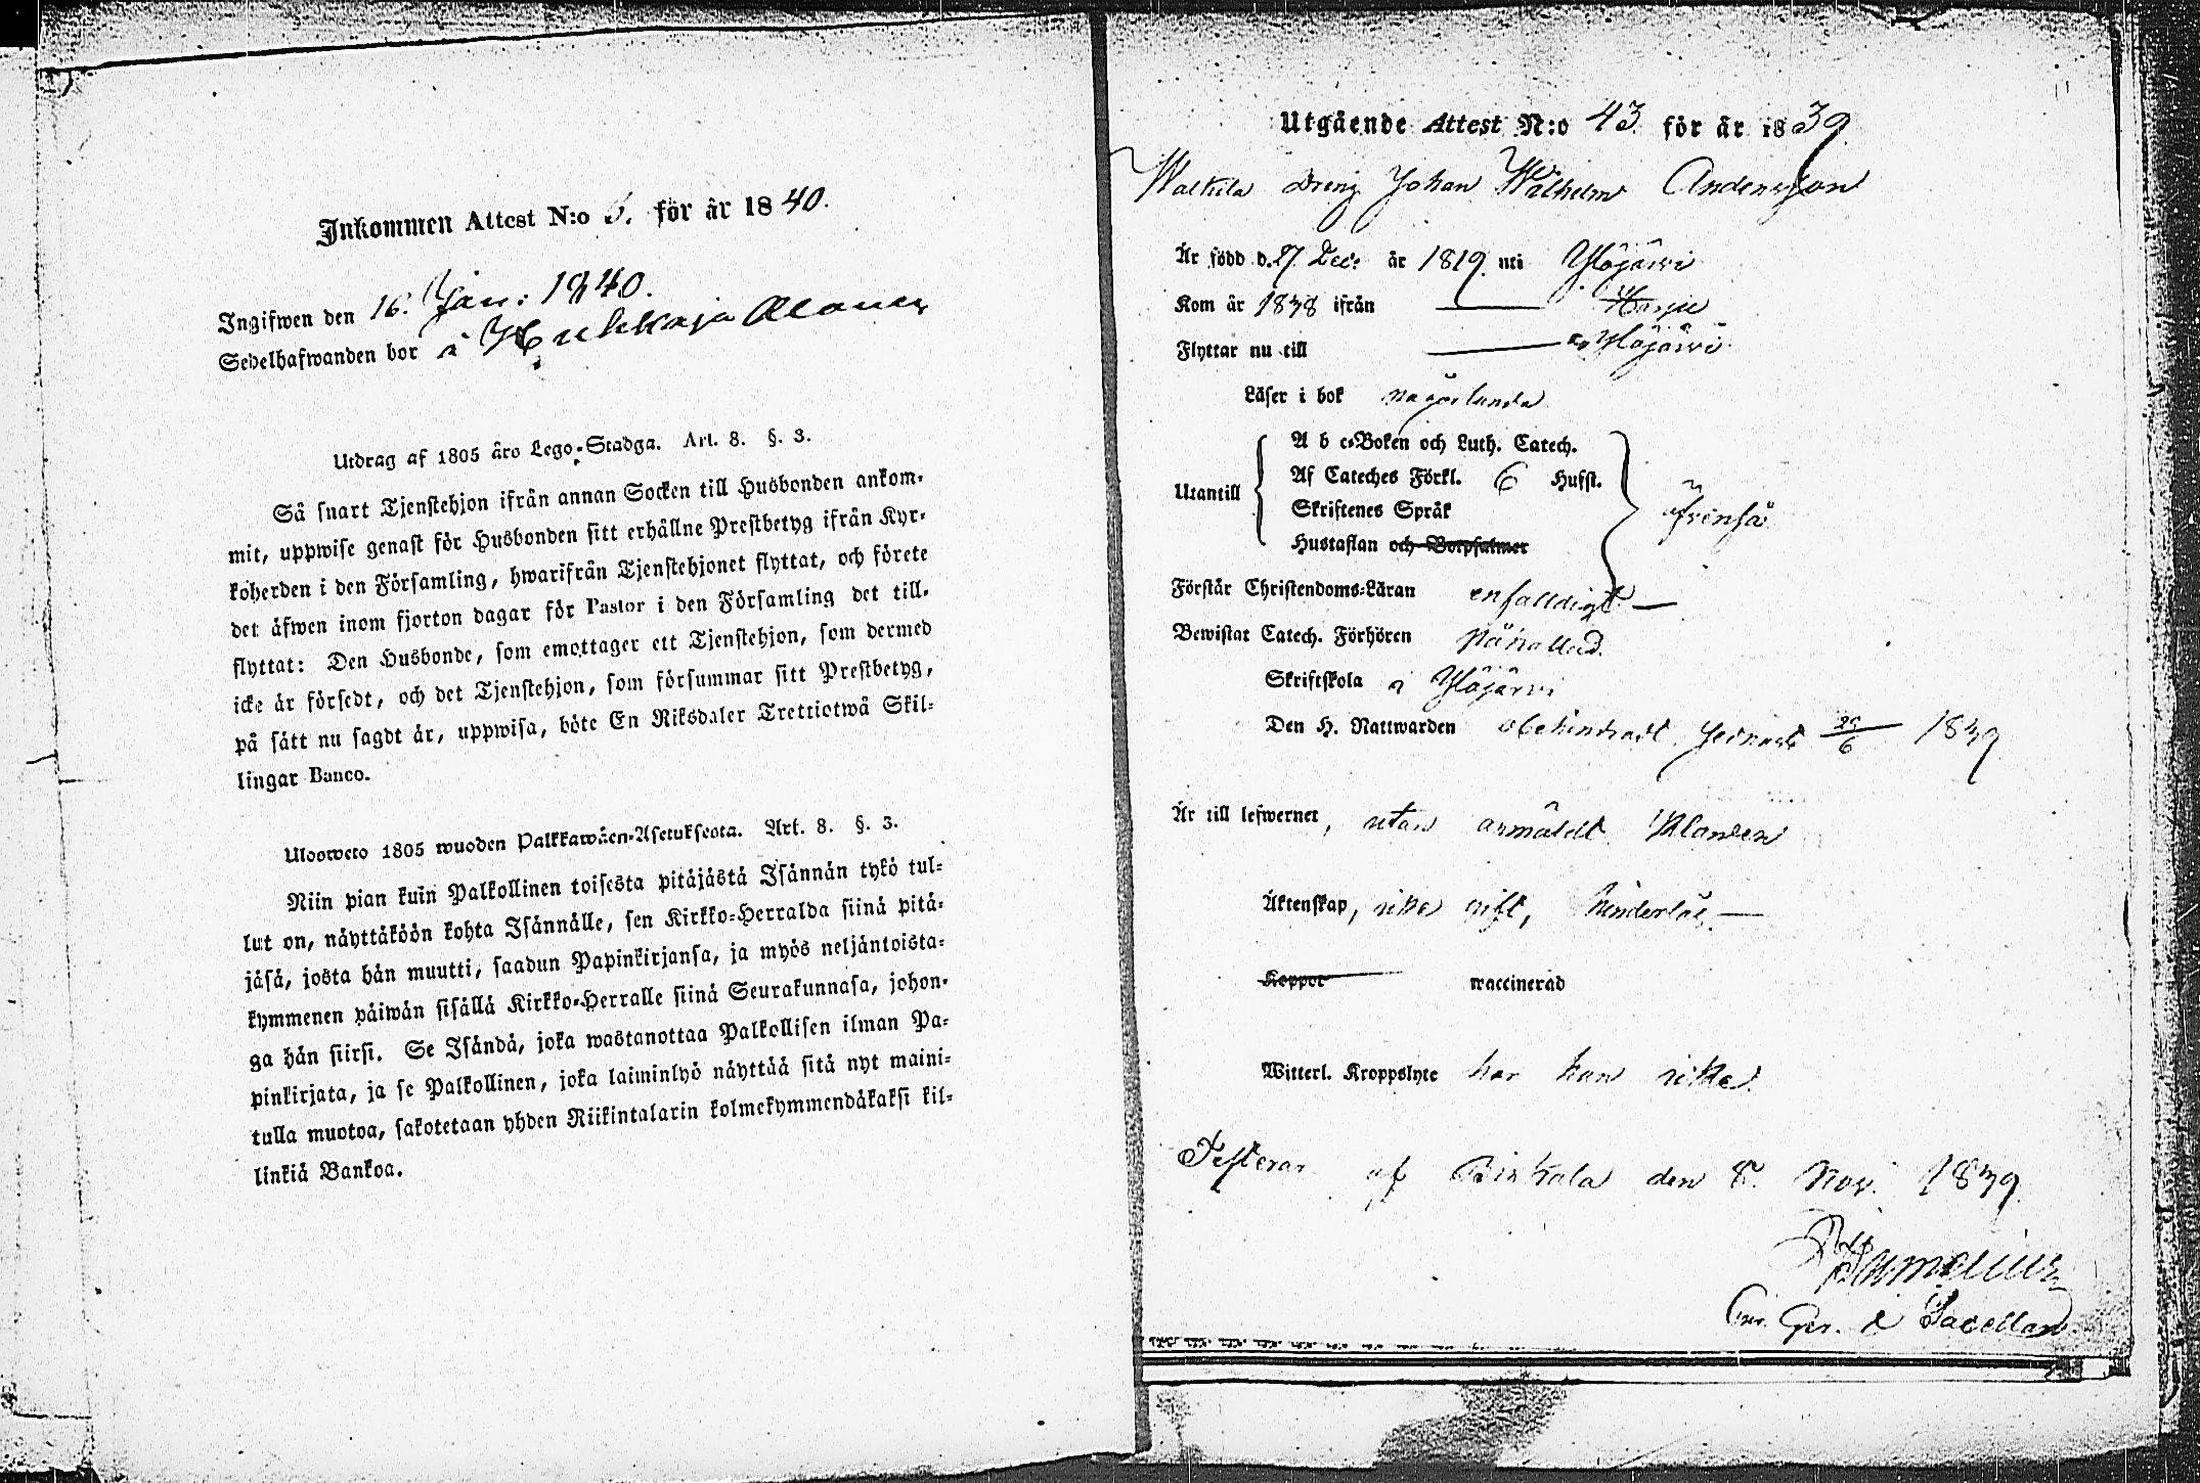 Inkommen Attest N:o 5. för år 1840.
Ingifwen den 16. Jan: 1840.
Sedelhafwanden bor i
Utdrag af 1805 års Lego-Stadga. Art. 8. §. 3.
Så snart Tjenstehjon ifrån annan Socken till Husbonden ankom-
mit, uppwise genast för Husbonden sitt erhållne Prestbetyg ifrån Kyr-
koherden i den Församling, hwarifrån Tjenstehjonet flyttat, och förete
det äfwen inom fjorton dagar för Pastor i den Församling det till-
flyttat: Den Husbonde, som emottager ett Tjenstehjon, som dermed
icke är försedt, och det Tjenstehjon, som försummar sitt Prestbetyg,
på sätt nu sagdt är, uppwisa, böte En Riksdaler Trettiotwå Skil-
lingar Banco.
Ulosweto 1805 wuoden Palkkawäen-Asetuksesta. Art. 8. §. 3.
Niin pian kuin Palkollinen toisesta pitäjästä Isännän tykö tul-
lut on, näyttäköön kohta Isännälle, sen Kirkko-Herralda siinä pitä-
jäsä, josta hän muutti, saadun Papinkirjansa, ja myös neljäntoista-
kymmenen päiwän sisällä Kirkko-Herralle siinä Seurakunnasa, johon-
ga hän siirsi. Se Isändä, joka wastanottaa Palkollisen ilman Pa-
pinkirjata, ja se Palkollinen, joka laiminlyö näyttää sitä nyt maini-
tulla muotoa, sakotetaan yhden Riikintalarin kolmekymmendäkaksi kil-
linkiä Bankoa.
Utgående Attest N:o 43 för år 1839.
Walkila Dreng Johan Wilhelm Andersson
Är född d. 27 Dec: år 1819. uti Ylöjärvi
Kom år 1838 ifrån Harju
Flyttar nu till Ylöjärvi
Läser i bok någorlunda
A b c-Boken och Luth. Catech.
Utantill Af Cateches Förkl. 6 Hufst.
Skriftenes Språk
Hustaflan och Botpsalmer
Förstår Christendoms-Läran enfaldigt
Bewistat Catech. Förhören
Skriftskola i Ylöjärvi
Den H. Nattwarden obehindradt, senast 29/6 1839
Är till lefwernet, utan anmäldt klander
Äktenskap, icke gift, hinderlös
Koppor waccinerad
Witterl. Kroppslyte har han icke.
Testerar af Birkala den 8. Nov. 1839.